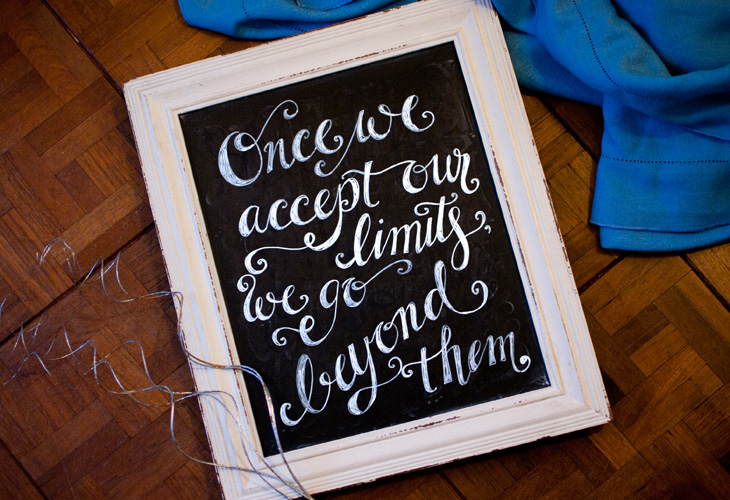 Once we
accept our
limits,
we go
beyond
them.